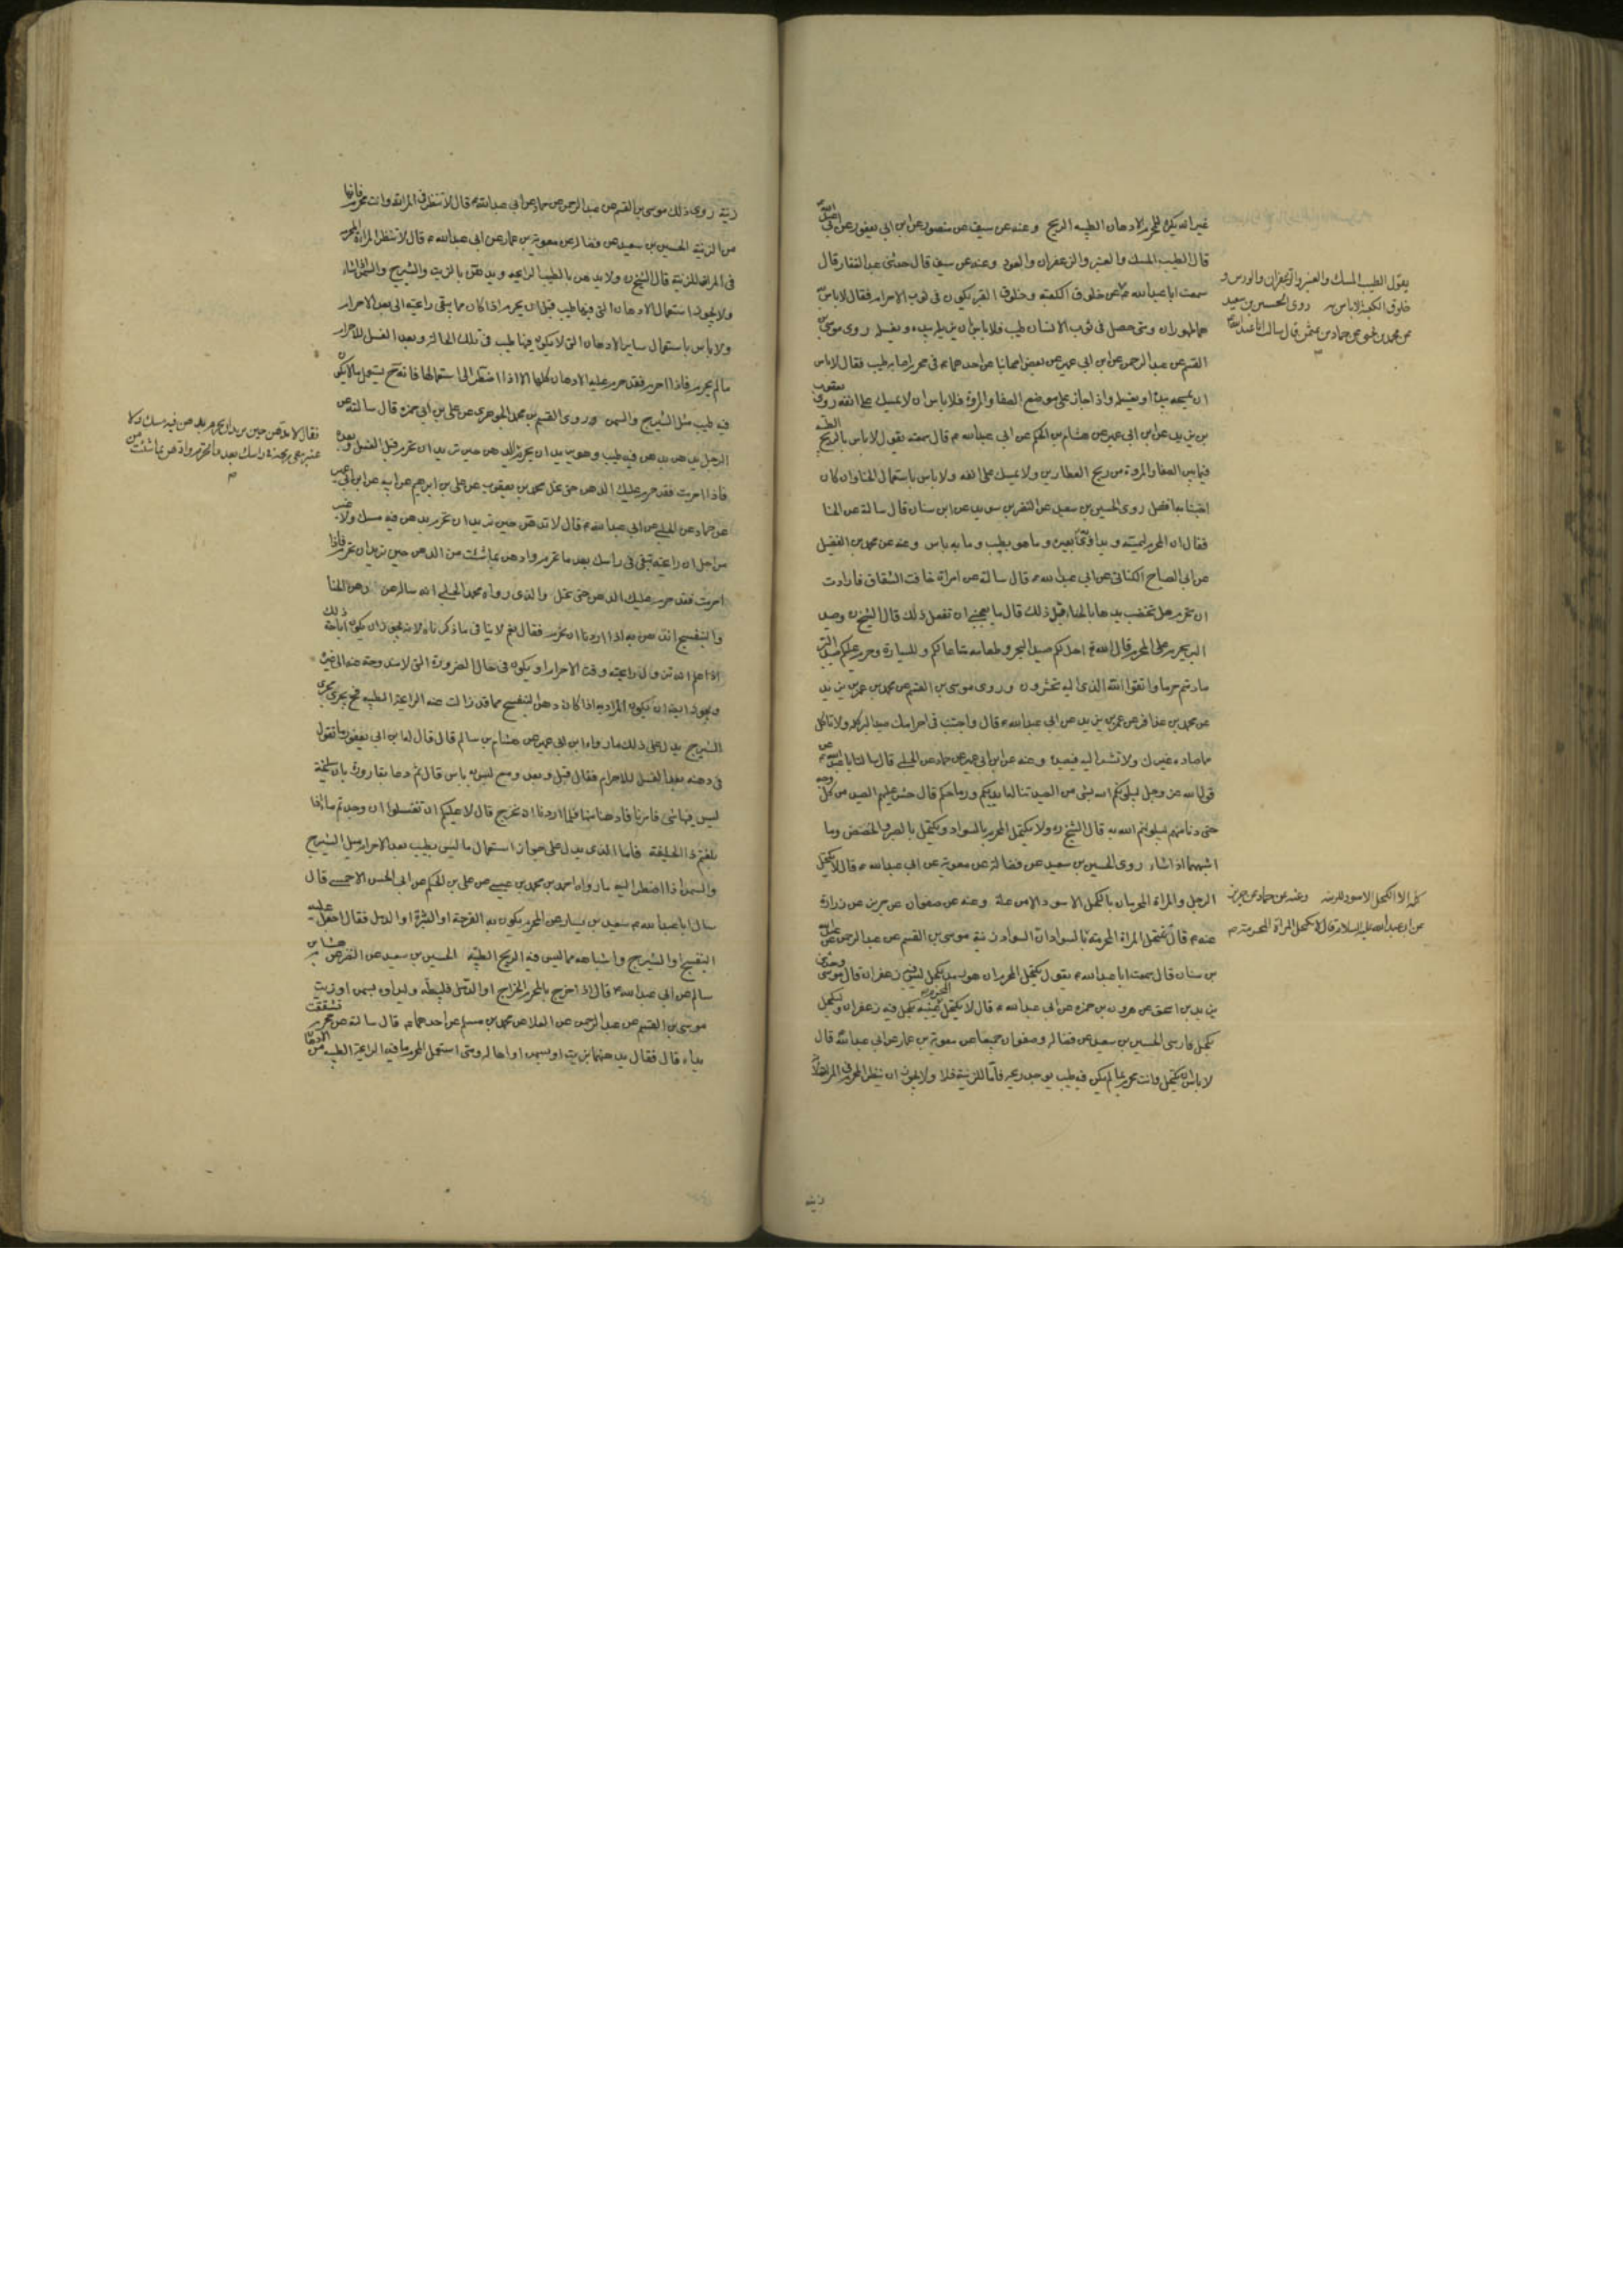 غير انه يكره للمحرم الادهان الطيبه الريح وعنه عن سيف عن منصور عن ابن ابي يعفور عن ابي عبد الله
قال الطيب المسك والعنبر والزعفران والعود وعنه عن سيف قال حدثني عبد الغفار قال
سمعت ابا عبد الله ع
يقول الطيب المسك والعنبر والزعفران والورس و
خلوق الكعبة لا باس به روى الحسين بن سعيد
عن حماد بن عثمن قال سالت ابا عبد الله
عن خلوق الكعبه وخلوق القبر يكون في ثوب الاحرام فقال لا باس به
هما طهوران ومتى حصل في ثوب الانسان طيب فلا باس ان يزيله بيده ويغسله روى موسى بن
القسم عن عبد الرحمن عن ابن ابي عمير عن بعض اصحابنا عن احدهما ع في محرم اصابه طيب فقال لا باس
ان يمسحه بيده او يغسله واذا جاز على موضع الصفا والمروة فلا باس ان لا يمسك على انفه روى يعقوب
بن يزيد عن ابن ابي عمير عن هشام بن الحكم عن ابي عبد الله ع قال سمعته يقول لا باس بالريح الطيبه
فيما بين الصفا والمروة من ريح العطارين ولا يمسك على انفه ولا باس باستعمال الحنا وان كان
اجتنابه افضل روى الحسين بن سعيد عن النضر بن سويد عن ابن سنان قال سالته عن الحنا
فقال ان المحرم ليمسه ويداوي به بعيره وما هو بطيب وما به باس وعنه عن محمد بن الفضيل
عن ابي الصباح الكناني عن ابي عبد الله ع قال سالته عن امراة خافت الشقاق فارادت
ان تحرم هل تخضب يدها بالحنا قبل ذلك قال ما يعجبني ان تفعل ذلك قال الشيخ ره وصيد
البر يحرم على المحرم قال الله تع احل لكم صيد البحر وطعامه متاعا لكم وللسيارة وحرم عليكم صيد البر
ما دمتم حرما واتقوا الله الذي اليه تحشرون وروى موسى بن القسم عن محمد بن عمر بن يزيد
عن محمد بن عذافر عن عمر بن يزيد عن ابي عبد الله ع قال واجتنب في احرامك صيد البر كله ولا تاكل
ما صاده غيرك ولا تشر اليه فيصيده وعنه عن ابن ابي عمير عن حماد عن الحلبي قال سالت ابا عبد الله ع عن
قول الله عز وجل ليبلونكم الله بشئ من الصيد تناله ايديكم ورماحكم قال حشر عليهم الصيد من كل وجه
حتى دنا منهم ليبلونهم الله به قال الشيخ ره ولا يكتحل المحرم بالسواد ويكتحل بالصبر والحضض وما
اشبههما اذا شاء روى الحسين بن سعيد عن فضالة عن معوية عن ابي عبد الله ع قال لا يكتحل
الرجل والمراة المحرمان بالكحل الاسود الا من علة وعنه عن صفوان عن حريز عن زرارة
كله الا الكحل الاسود للزينه وعنه عن حماد عن حريز
عن ابي عبد الله عليه السلام قال لا تكتحل المراة المحرمة م
عنه ع قال تكتحل المراة المحرمة بالسواد ان السواد زينة موسى بن القسم عن عبد الرحمن عن عبد الله
بن سنان قال سمعت ابا عبد الله ع يقول يكتحل المحرم ان هو رمد بكحل ليس فيه زعفران قال موسى وحدثني
يزيد بن اسحق عن هرون بن حمزه عن ابي عبد الله ع قال لا يكحل المحرم عينيه بكحل فيه زعفران وليكحل
بكحل فارسي الحسين بن سعيد عن فضالة وصفوان جميعا عن معوية بن عمار عن ابي عبد الله قال
لا باس ان يكتحل وانت محرم بما لم يكن فيه طيب يوجد ريحه فاما للزينة فلا ولا يجوز ان ينظر المحرم في المراة لانه
زينة
زينة روى ذلك موسى بن القسم عن عبد الرحمن عن حماد عن ابي عبد الله ع قال لا تنظر في المراة وانت محرم فانها
من الزينة الحسين بن سعيد عن فضالة عن معوية بن عمار عن ابي عبد الله ع قال لا تنظر المراة المحرمه
في المراة للزينة قال الشيخ ره ولا يدهن بالطيب الرايحه ويدهن بالزيت والشيرج والسمن ان شاء
ولا يجوز استعمال الادهان التي فيها طيب قبل ان يحرم اذا كان مما يبقى رايحته الى بعد الاحرام
ولا باس باستعمال ساير الادهان التي لا يكون فيها طيب في تلك الحالة وبعد الغسل للاحرام
ما لم يحرم فاذا احرم فقد حرم عليه الادهان كلها الا اذا اضطر الى استعمالها فانه ح يستعمل ما لا يكون
فيه طيب مثل الشيرج والسمن وروى القسم بن محمد الجوهري عن علي بن ابي حمزه قال سالته عن
الرجل يدهن بدهن فيه طيب وهو يريد ان يحرم
فقال لا تدهن حين تريد ان تحرم بدهن فيه مسك ولا
عنبر يبقى ريحه في راسك بعد ما تحرم وادهن بما شئت من
الدهن حين تريد ان تحرم قبل الغسل وبعده
فاذا احرمت فقد حرم عليك الدهن حتى تحل محمد بن يعقوب عن علي بن ابرهيم عن ابيه عن ابن ابي عمير
عن حماد عن الحلبي عن ابي عبد الله ع قال لا تدهن حين تريد ان تحرم بدهن فيه مسك ولا عنبر
من اجل ان رايحته تبقى في راسك بعد ما تحرم وادهن بما شئت من الدهن حين تريد ان تحرم فاذا
احرمت فقد حرم عليك الدهن حتى تحل والذي رواه محمد الحلبي انه ساله عن دهن الحنا
والبنفسج اندهن به اذا اردنا ان نحرم فقال نعم لا ينافي ما ذكرناه لانه يجوز ان يكون اباحة ذلك
اذا علم انه تزول رايحته وقت الاحرام او يكون في حال الضرورة التي لا مندوحة عنه الى غيره
ويجوز ايضا ان يكون المراد به اذا كان دهن البنفسج مما قد زالت عنه الرايحة الطيبه فح يجري مجرى
الشيرج يدل على ذلك ما رواه ابن ابي عمير عن هشام بن سالم قال قال له ابن ابي يعفور ما تقول
في دهنه بعد الغسل للاحرام فقال قبل وبعد ومع ليس به باس قال ثم دعا بقارورة بان سليخة
ليس فيها شئ فامرنا فادهنا منها فلما اردنا ان نخرج قال لا عليكم ان تغتسلوا ان وجدتم ماء اذا
بلغتم ذا الحليفة فاما الذي يدل على جواز استعمال ما ليس بطيب بعد الاحرام مثل الشيرج
والسمن اذا اضطر اليه ما رواه احمد بن محمد بن عيسى عن علي بن الحكم عن ابي الحسن الاحمسي قال
سال ابا عبد الله ع سعيد بن يسار عن المحرم يكون به القرحة او البثرة او الدمل فقال اجعل عليه
البنفسج او الشيرج واشباهه مما ليس فيه الريح الطيبه الحسين بن سعيد عن النضر عن هشام بن
سالم عن ابي عبد الله ع قال اذا خرج بالمحرم الخراج او الدمل فليبطه وليداوه بسمن او زيت
موسى بن القسم عن عبد الرحمن عن العلا عن محمد بن مسلم عن احدهما ع قال سالته عن محرم تشققت
يداه قال فقال يدهنهما بزيت او بسمن او اهالة ومتى استعمل المحرم ما فيه الرايحة الطيبه من الادهان